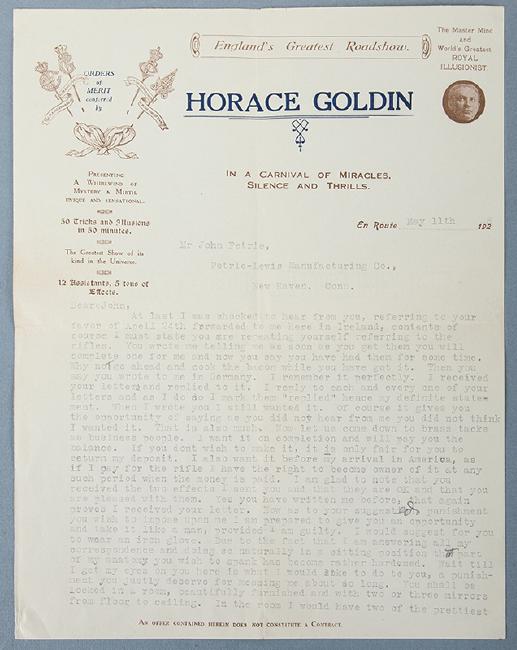 England's Greatest Roadshow.
The Master Mind
and
World's Greatest
ROYAL
ILLUSIONIST
ORDERS
of
MERIT
conferred
by
HORACE GOLDIN
IN A CARNIVAL OF MIRACLES.
SILENCE AND THRILLS.
PRESENTING
A WHIRLWIND OF
MYSTERY & MIRTH.
UNIQUE AND SENSATIONAL.
50 Tricks and Illusions
in 50 minutes.
The Greatest Show of its
kind in the Universe.
12 Assistants, 5 tons of
Effects.
En Route May 11th 192
Mr John Petrie,
Petrie-Lewis Manufacturing Co.,
New Haven. Conn.
Dear John,
At last I was shocked to hear from you, referring to your
favor of April 24th forwarded to me here in Ireland, contents of
course I must state you are repeating yourself referring to the
rifles. You wrote me telling me as soon as you get them you will
complete one for me and now you say you have had them for some time.
Why not go ahead and cook the bacon while you have got it. Then you
say you wrote to me in Germany. I remember it perfectly. I received
your letter and replied to it. I reply to each and every one of your
letters and as I do so I mark them "replied" hence my definite state-
ment. When I wrote you I still wanted it. Of course it gives you
the opportunity of saying as you did not hear from me you did not think
I wanted it. That is also much. Now let us come down to brass tacks
as business people. I want it on completion and will pay you the
balance. If you dont wish to make it, it is only fair for you to
return my deposit. I also want it before my arrival in America, as
if I pay for the rifle I have the right to become owner of it at any
such period when the money is paid. I am glad to note that you
received the two effects I sent you and that they are OK and that you
are pleased with them. Yes you have written me before, that again
proves I received your letter. Now as to your suggested punishment
you wish to impose upon me I am prepared to give you an opportunity
and take it like a man, provided I am guilty. I would suggest for you
to wear an iron glove. Due to the fact that I am answering all my
correspondence and doing so naturally in a sitting position part
of my anatomy you wish to spank has become rather hardened. Wait till
I get my eyes on you here is what I would like to do to you, a punish-
ment you justly deserve for keeping me about so long. You shall be
locked in a room, beautifully furnished and with two or three mirrors
from floor to ceiling. In the room I would have two of the prettiest
AN OFFER CONTAINED HEREIN DOES NOT CONSTITUTE A CONTRACT.